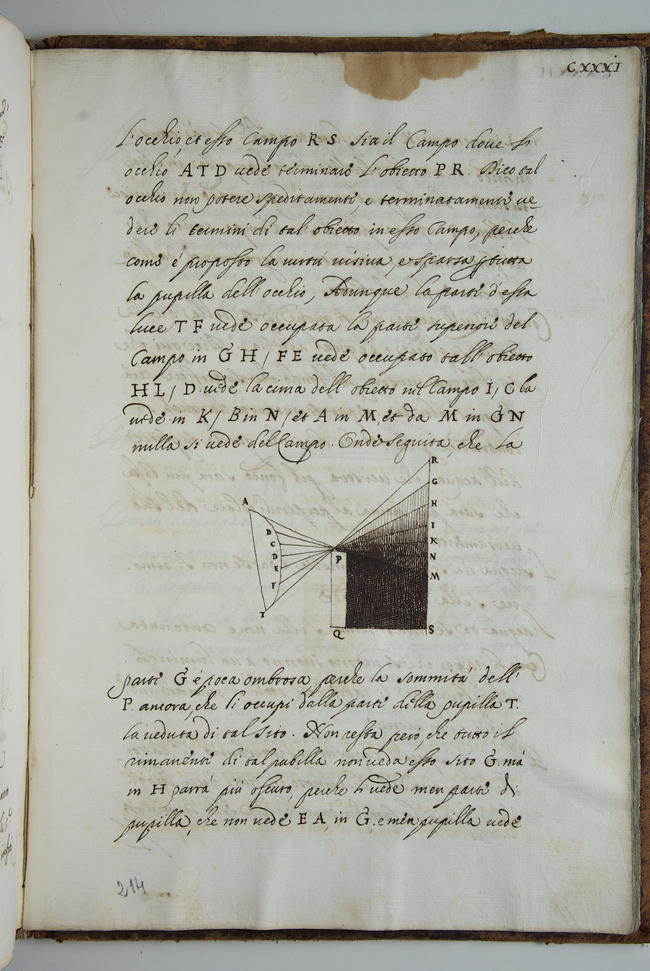 CXXXI
L'occhio, et esso Campo R S sia il Campo dove so
occhio A T D vede terminare l'obietto P R. Dico tal
occhio non potere speditamente, e terminatamente ve-
dere li termini di tal obietto in esso Campo, perche
come è proposto la virtù visiva, è sparsa tutta
la pupilla dell occhio, Adunque la parte d'essa
luce T F vede occupata la parte superiore del
Campo in G H / F E vede occupato dall obietto
H L / D vede la cima dell obietto nel Campo I, C la
vede in K / B in N / et A in M et da M in G N
nulla si vede del Campo. Onde seguita che la
R
G
H
I
K
N
M
A
B
C
D
E
F
T
P
Q
S
parte G è poca ombrosa perche la sommità dell'
P. ancora, che li occupi dalla parte della pupilla T.
la veduta di tal sito. Non resta però che tutto il
rimanente di tal pubilla non veda esso sito G. mà
in H parrà più oscuro, perche li vede men parte di
pupilla, che non vede E A, in G. e men pupilla vede
214